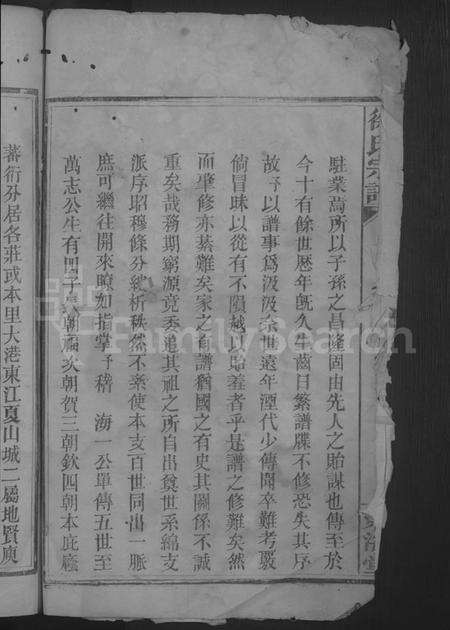 徐氏宗譜
駐業焉所以子孫之昌隆固由先人之貽謀也傳至於
今十有餘世歷年既久生齒日繁譜牒不修恐失其序
故予以譜事為汲汲余世遠年湮代少傳聞卒難考覈
倘冒昧以從有不隕越以貽羞者乎是譜之修難矣然
而畢修亦綦難矣家之有譜猶國之有史其關係不誠
重矣哉務期窮源竟委追其祖之所自出發世系綿支
派序昭穆條分縷析秩然不紊使本支百世同出一脈
庶可繼往開來瞭如指掌予稽 海一公單傳五世至
萬志公生有四子長朝 次朝賀三朝欽四朝本庶蔭
蕃衍分居各莊或本里大港東江夏山城二屬地賢庾
FamilySearch